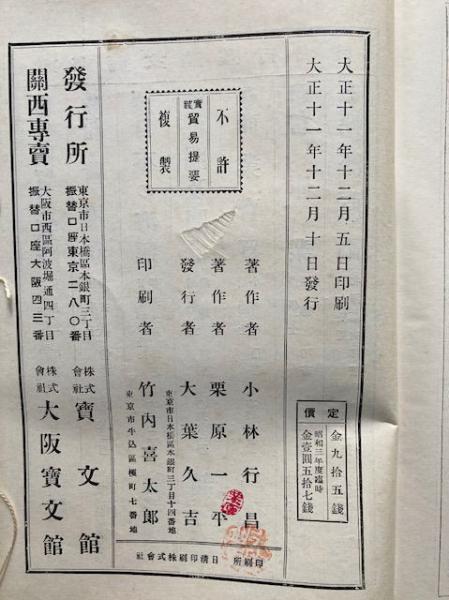 大正十一年十二月五日印刷
大正十一年十二月十日發行
定價
金九拾五錢
昭和三年度臨時
金壹圓五拾七錢
不許
實踐
貿易提要
複製
著作者 小林行昌
著作者 栗原一平
發行者 大葉久吉
東京市日本橋區本銀町三丁目十四番地
印刷者 竹内喜太郎
東京市牛込區榎町七番地
印刷所 日清印刷株式會社
發行所
東京市日本橋區本銀町三丁目
振替口座東京二八〇番
株式會社 寶文館
關西專賣
大阪市西區阿波堀通四丁目
振替口座大阪四三番
株式會社 大阪寶文館